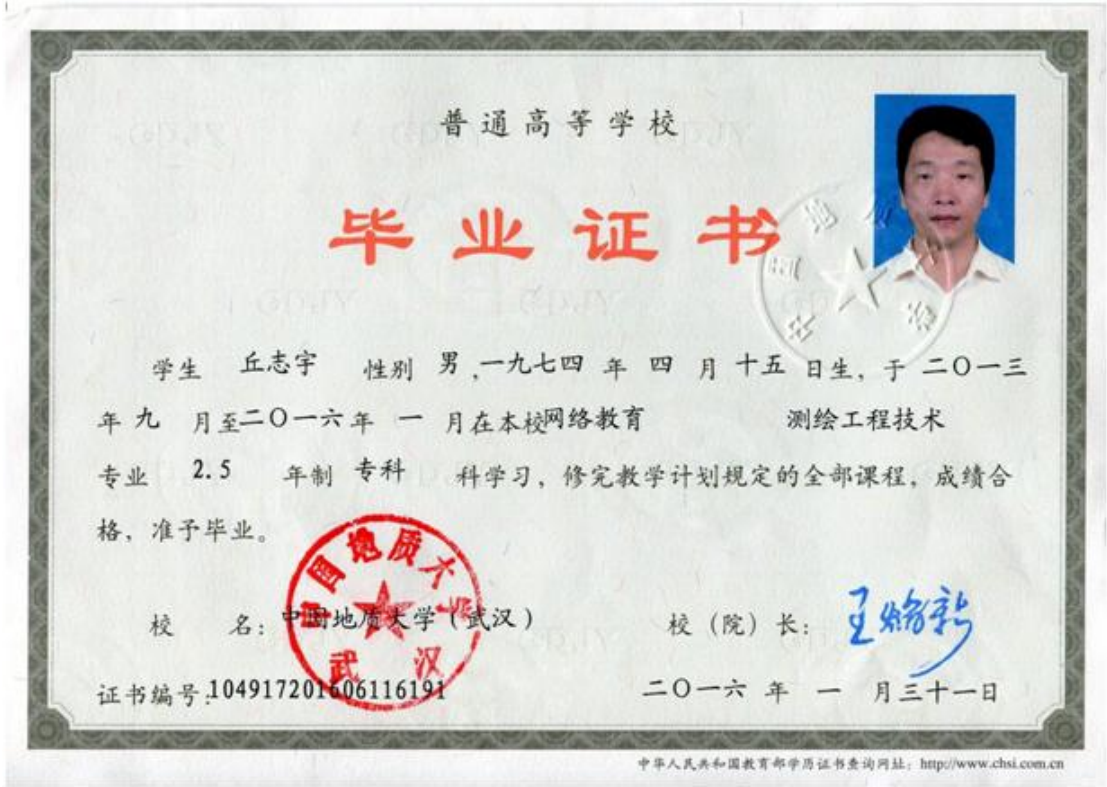 普通高等学校
毕业证书
学生 丘志宇 性别 男,一九七四 年 四 月 十五 日生，于 二〇一三
年 九 月至二〇一六年 一 月在本校网络教育 测绘工程技术
专业 2.5 年制 专科 科学习，修完教学计划规定的全部课程，成绩合
格，准予毕业。
中国地质大学
武汉
校 名：中国地质大学（武汉）
校（院）长：
证书编号：104917201606116191
二〇一六 年 一 月三十一日
中华人民共和国教育部学历证书查询网址：http://www.chsi.com.cn